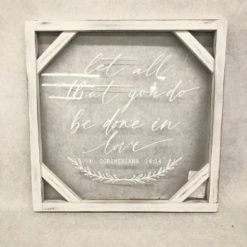 let all
that you do
be done in
love
1 CORINTHIANS 16:14